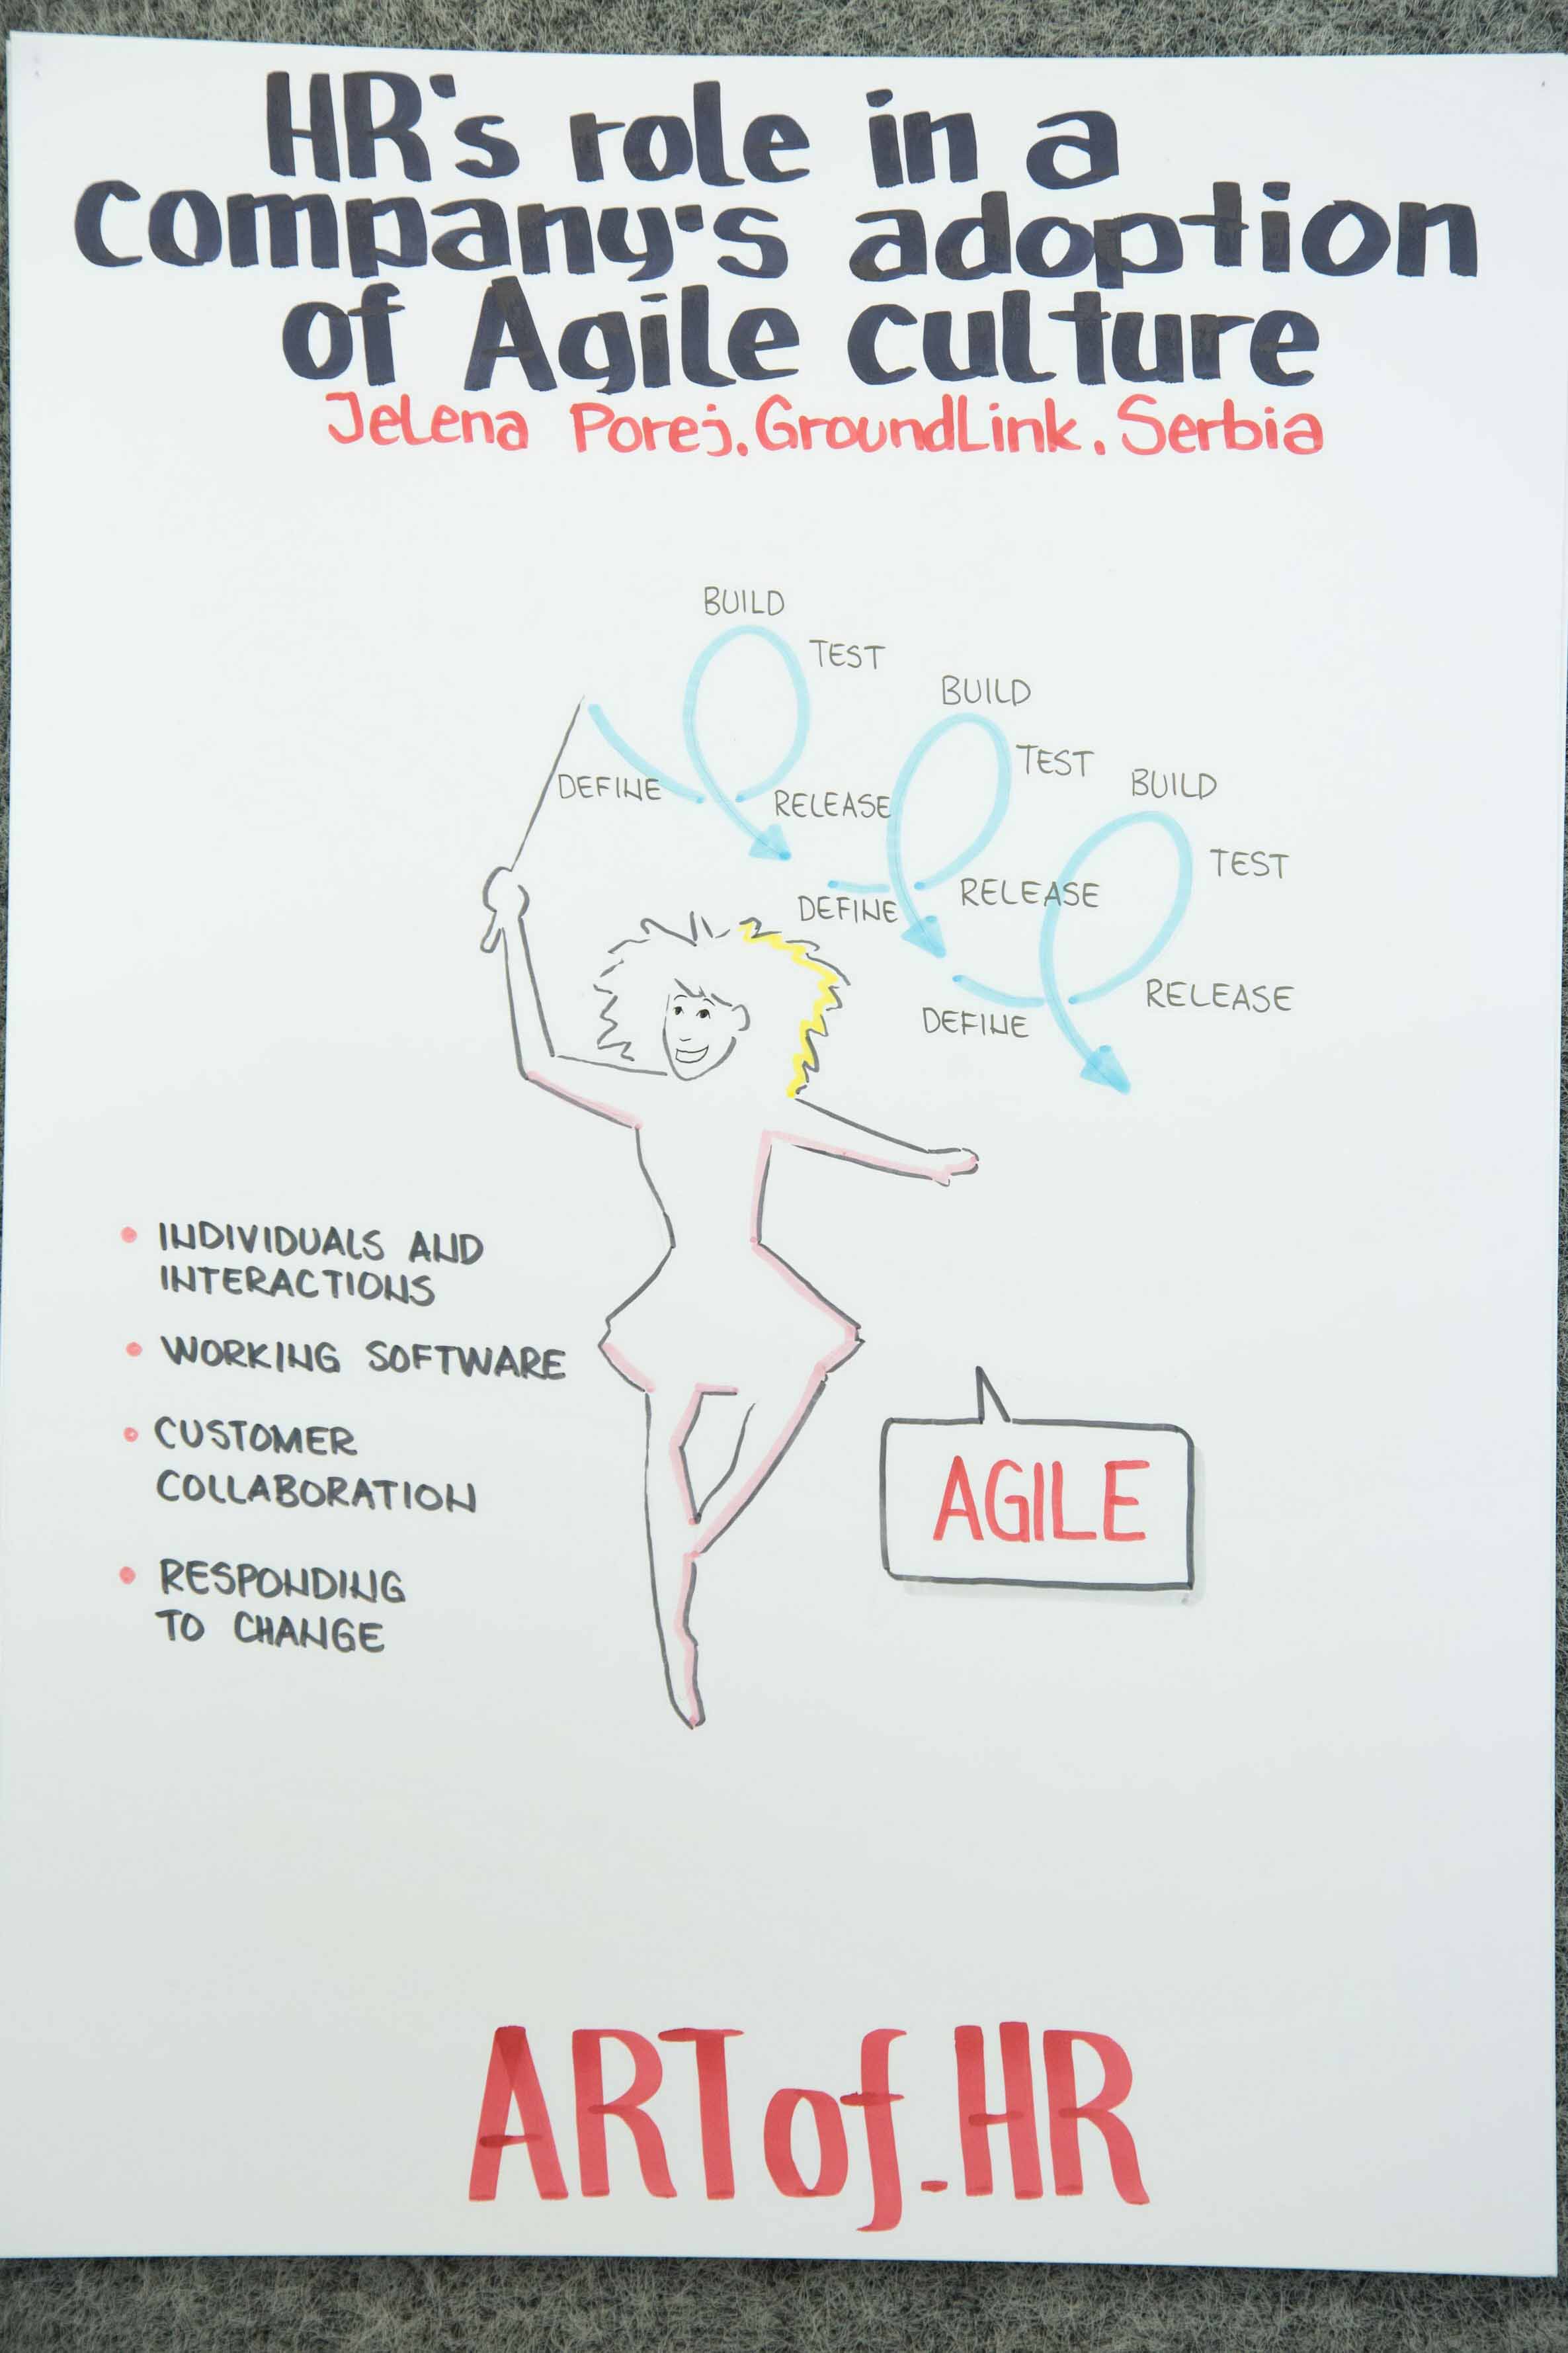 HR's role in a
company's adoption
of Agile culture
Jelena Porej. GroundLink. Serbia
BUILD
TEST
DEFINE
RELEASE
BUILD
TEST
DEFINE
RELEASE
BUILD
TEST
DEFINE
RELEASE
• INDIVIDUALS AND
INTERACTIONS
• WORKING SOFTWARE
• CUSTOMER
COLLABORATION
• RESPONDING
TO CHANGE
AGILE
ART of.HR